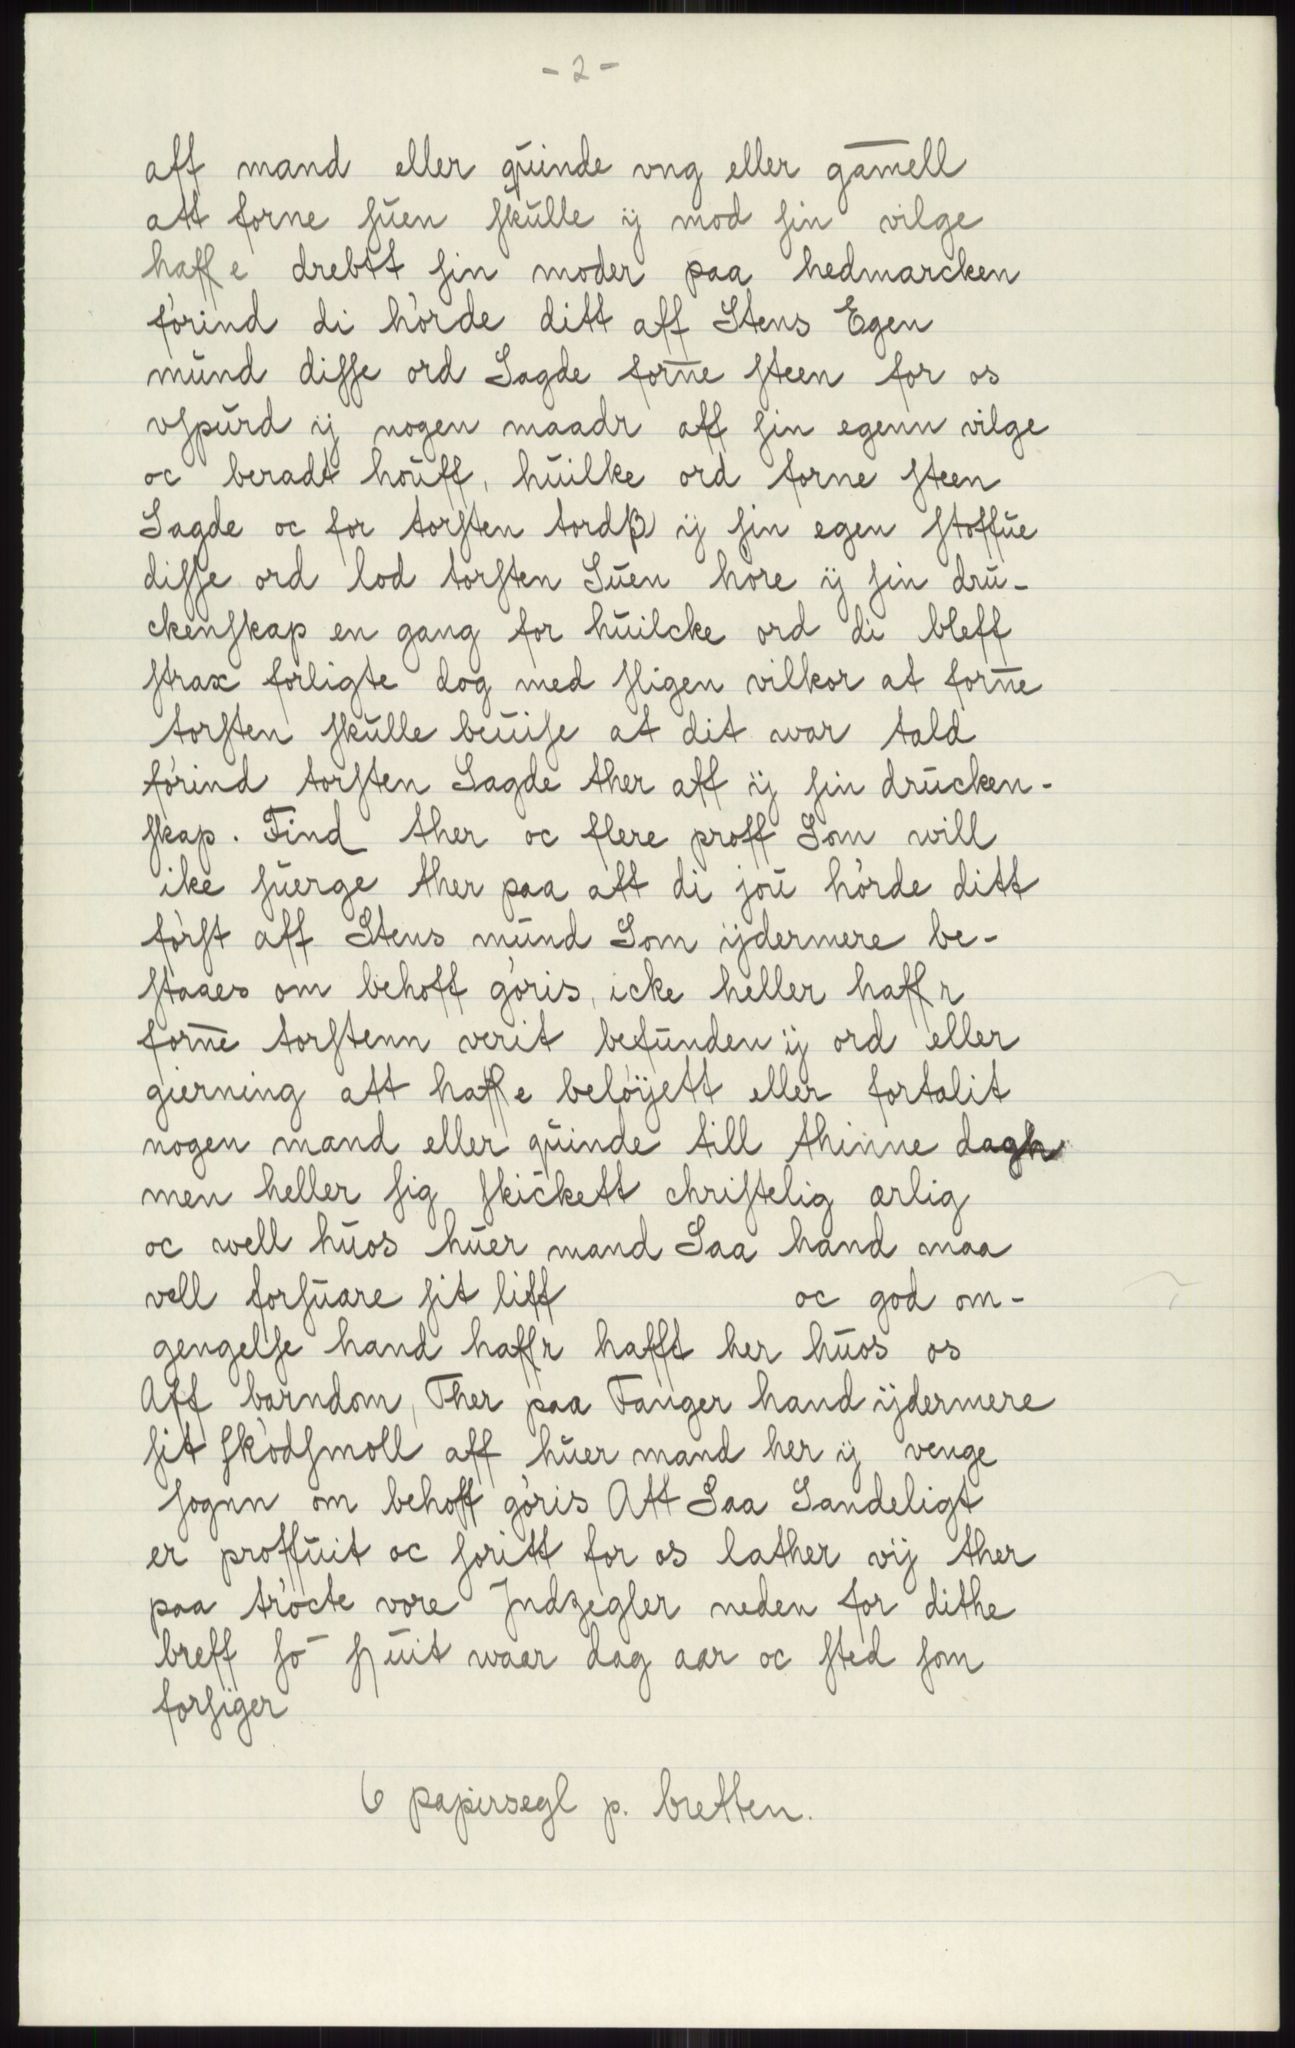 - 2 -
aff mand eller quinde vng eller gam̄ell
att forne suen skulle ij mod sin vilge
haffe drebtt sin moder paa hedmarcken
förind di hörde ditt aff Stens Egen
mund disse ord Sagde forn̄e steen for os
vspurd ij nogen maadr aff sin egenn vilge
oc beradt houff, huilke ord forne steen
Sagde oc for torsten tordß ij sin egen stoffue
disse ord lod torsten Suen höre ij sin dru-
ckenskap en gang for huilcke ord di bleff
strax forligte dog med sligen vilkor at forn̄e
torsten skulle beuise at dit war tald
förind torsten Sagde ther aff ij sin drucken-
skap. Find ther oc flere proff Som will
ike suerge ther paa att di jou hörde ditt
först aff Stens mund Som ijdermere be-
staaes om behoff göris, icke heller haffr
forn̄e torstenn verit befunden ij ord eller
gierning att haffe belöijett eller fortalit
nogen mand eller quinde till thinne dagh
men heller sig skickett christelig ærlig
oc well huos huer mand Saa hand maa
vell forsuare sit liff oc god om-
gengelse hand haffr hafft her huos os
Aff barndom, Ther paa Fanger hand ijdermere
sit sködsmoll aff huer mand her ij venge
sognn om behoff göris Att Saa Sandeligt
er proffuit oc soritt for os lather vij ther
paa tröcte vore Indzegler neden for dithe
breff so skuit waar dag aar oc sted som
forsiger
6 papirsegl p. bretten.